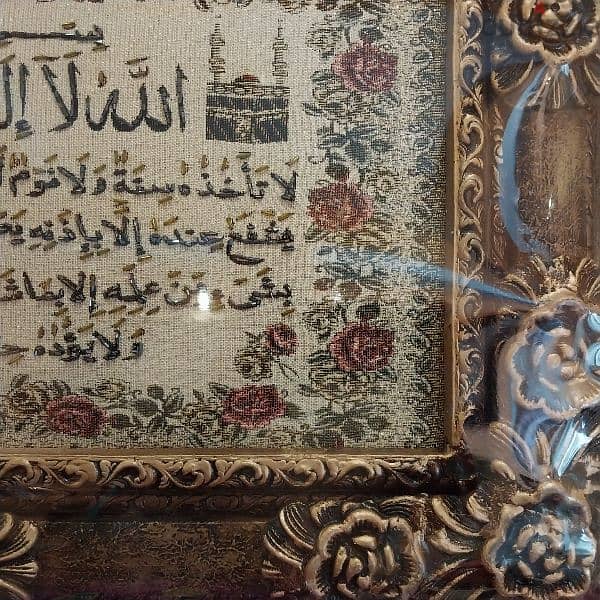 بسـ
اللَّهُ لَآ إِلَـ
لَا تَأْخُذُهُ سِنَةٌ وَلَا نَوْمٌ لَـ
يَشْفَعُ عِندَهُ إِلَّا بِإِذْنِهِ يَعْـ
بِشَيْءٍ مِّنْ عِلْمِهِ إِلَّا بِمَا شَـ
وَلَا يَؤُدُهُ حِـ